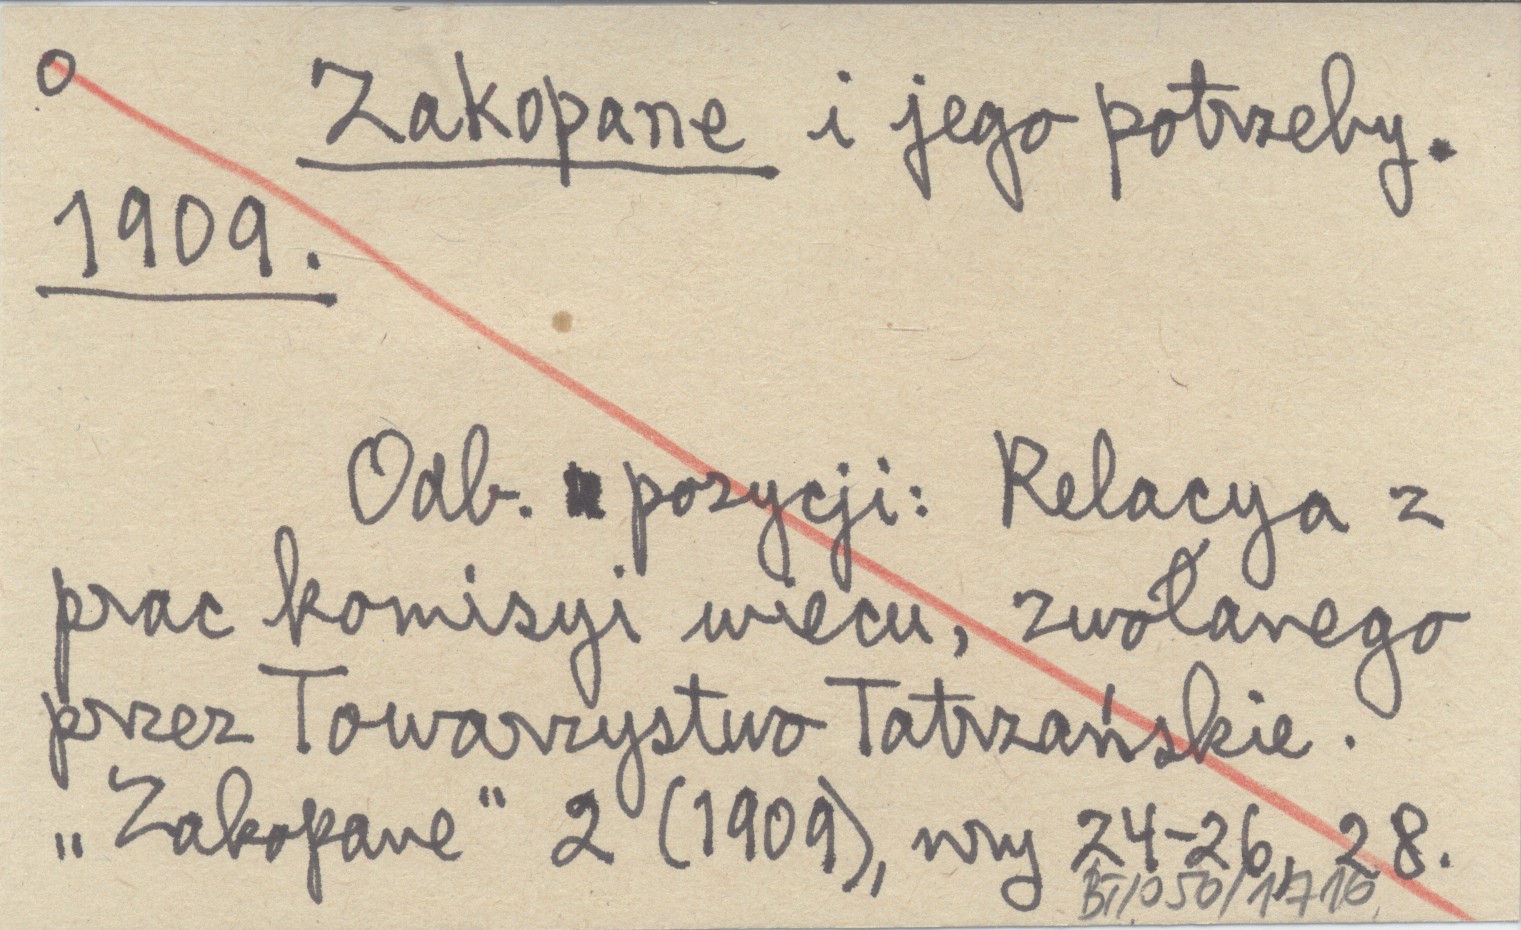 O Zakopane i jego potrzeby.
1909.
Odb. pozycji: Relacya z
prac komisyi wiecu, zwołanego
przez Towarzystwo Tatrzańskie.
„Zakopane" 2 (1909), nry 24-26, 28.
BT/050/1716